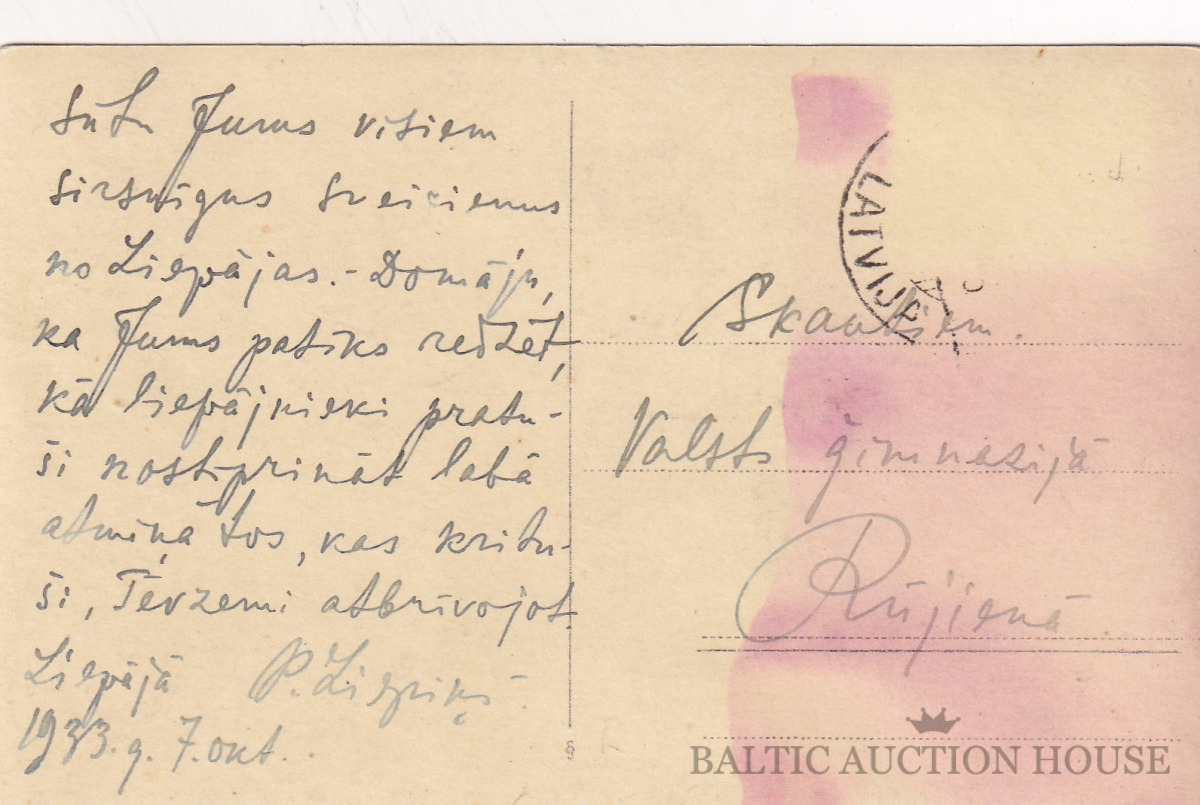 Sūtu Jums visiem
sirsnīgus sveicienus
no Liepājas. - Domāju,
ka Jums patiks redzēt,
kā liepājnieki pratu-
ši nostiprināt labā
atmiņā tos, kas kritu-
ši, Tēvzemi atbrīvojot.
Liepājā P. Liepiņš.
1933. g. 7. okt.
LATVIJA
Skautiem.
Valsts ģimnāzijā
Rūjienā.
BALTIC AUCTION HOUSE